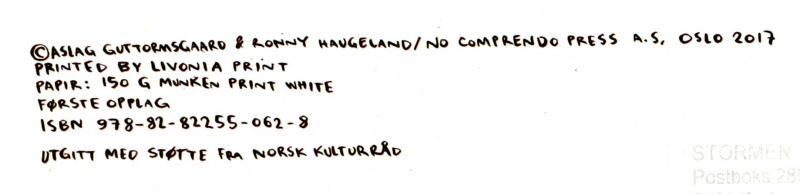 ©ASLAG GUTTORMSGAARD & RONNY HAUGELAND/NO COMPRENDO PRESS A.S, OSLO 2017
PRINTED BY LIVONIA PRINT
PAPIR: 150 G MUNKEN PRINT WHITE
FØRSTE OPPLAG
ISBN 978-82-82255-062-8
UTGITT MED STØTTE FRA NORSK KULTURRÅD
STORMEN
Postboks